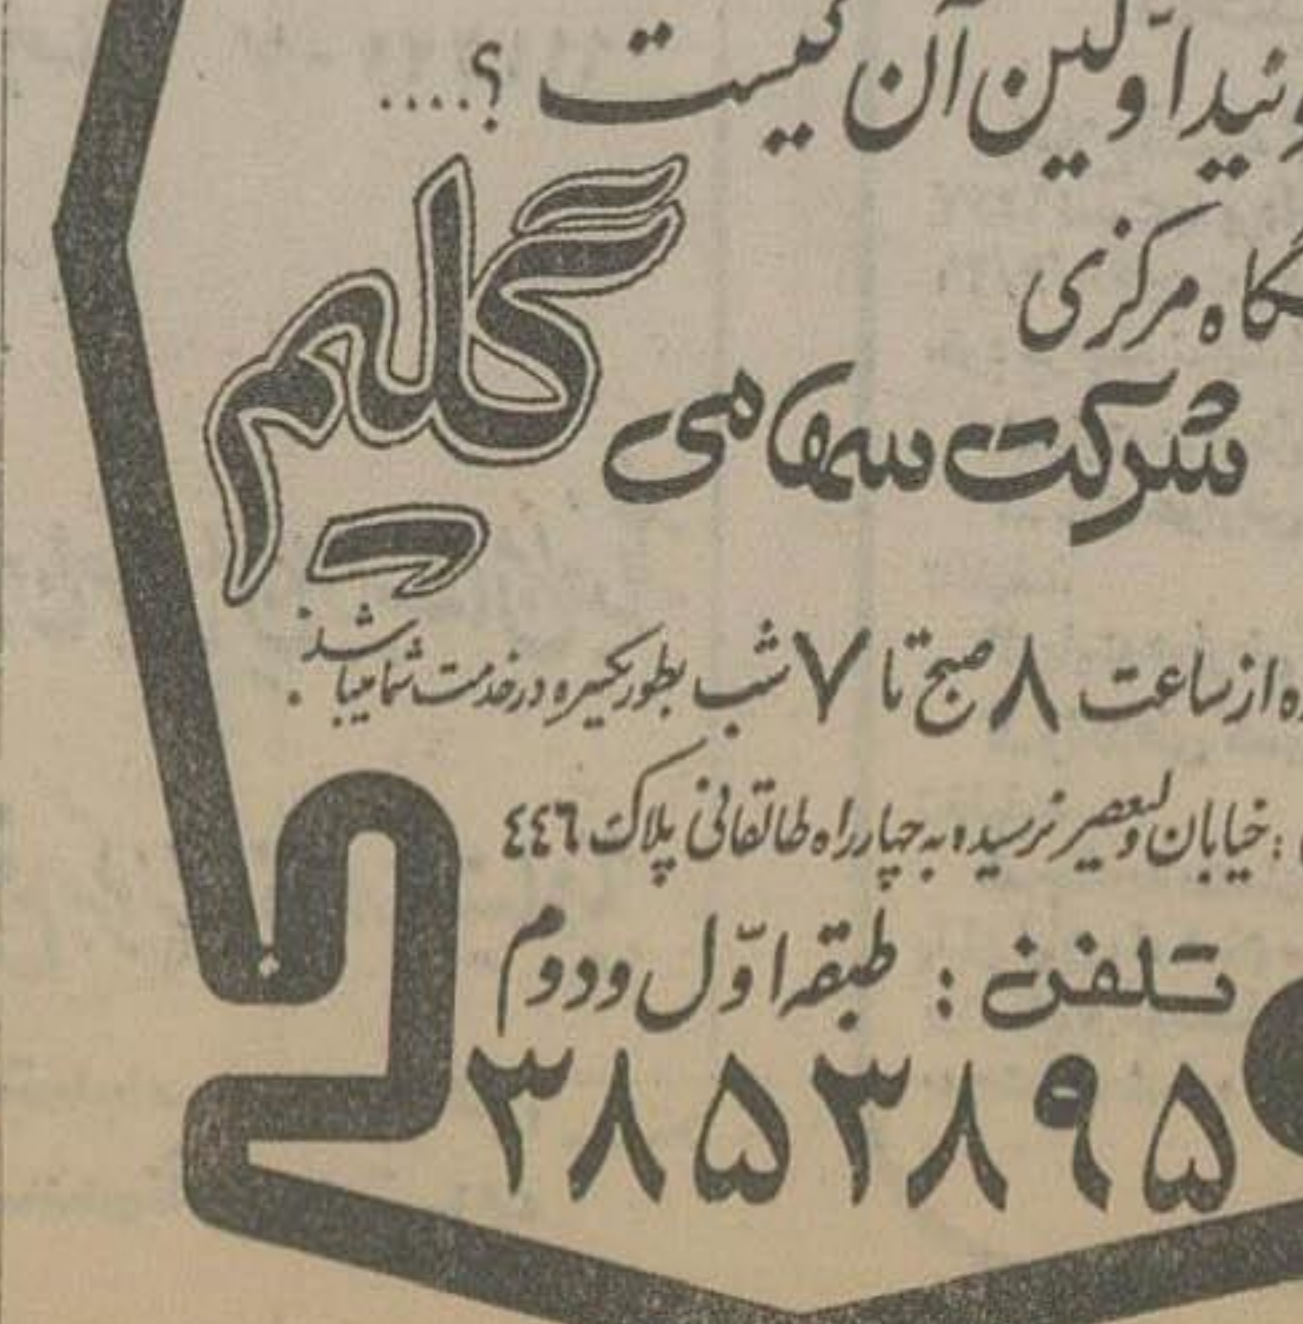 اولین آن کیست ؟....
مرکزی
شرکت سهامی گلیم
از ساعت ۸ صبح تا ۷ شب بطور یکسره در خدمت شما میباشد.
: خیابان ولیعصر نرسیده به چهارراه طالقانی پلاک ٤٤٦
تلفن : طبقه اوّل و دوم
۳۸۵۳۸۹۵